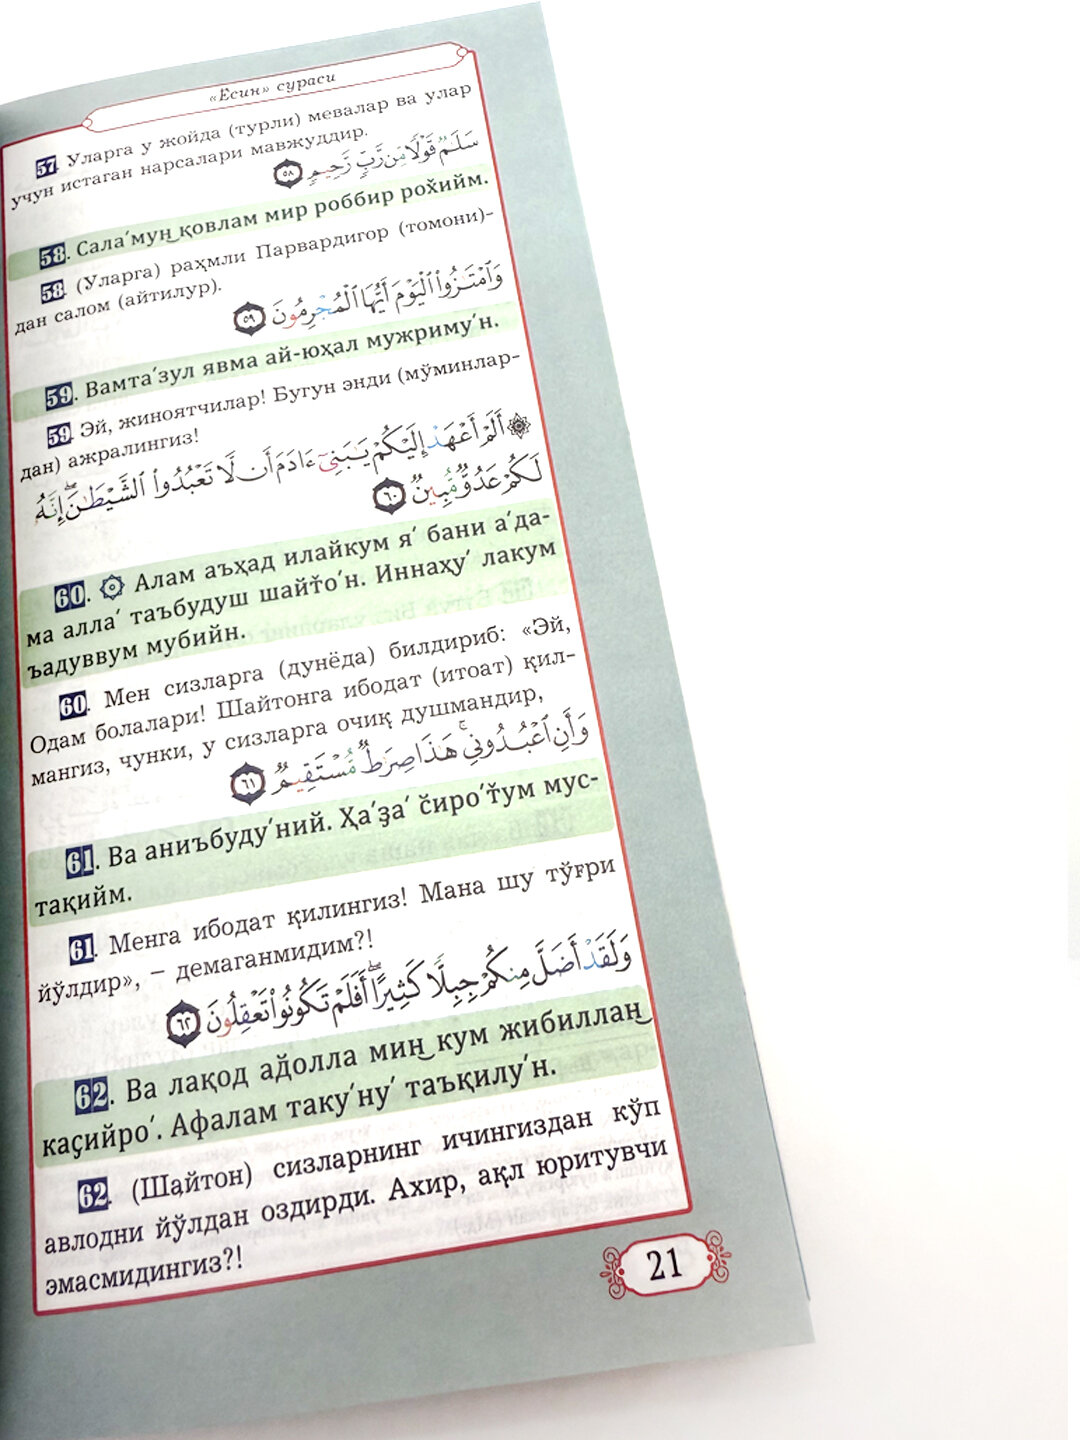 «Ёсин» сураси
57. Уларга у жойда (турли) мевалар ва улар
учун истаган нарсалари мавжуддир.
سَلَـٰمٌ قَوْلًا مِّن رَّبٍّ رَّحِيمٍ ٥٨
58. Салаʼмун қовлам мир роббир роҳийм.
58. (Уларга) раҳмли Парвардигор (томони)-
дан салом (айтилур).
وَٱمْتَـٰزُوا۟ ٱلْيَوْمَ أَيُّهَا ٱلْمُجْرِمُونَ ٥٩
59. Вамтаʼзул явма ай-юҳал мужримуʼн.
59. Эй, жиноятчилар! Бугун энди (мўминлар-
дан) ажралингиз!
۞ أَلَمْ أَعْهَدْ إِلَيْكُمْ يَـٰبَنِىٓ ءَادَمَ أَن لَّا تَعْبُدُوا۟ ٱلشَّيْطَـٰنَ ۖ إِنَّهُۥ
لَكُمْ عَدُوٌّ مُّبِينٌ ٦٠
60. ۞ Алам аъҳад илайкум яʼ бани аʼда-
ма аллаʼ таъбудуш шайтоʼн. Иннаҳуʼ лакум
ъадуввум мубийн.
60. Мен сизларга (дунёда) билдириб: «Эй,
Одам болалари! Шайтонга ибодат (итоат) қил-
мангиз, чунки, у сизларга очиқ душмандир,
وَأَنِ ٱعْبُدُونِى ۚ هَـٰذَا صِرَٰطٌ مُّسْتَقِيمٌ ٦١
61. Ва аниъбудуʼний. Ҳаʼҙаʼ с̆ироʼт̆ум мус-
тақийм.
61. Менга ибодат қилингиз! Мана шу тўғри
йўлдир», – демаганмидим?!
وَلَقَدْ أَضَلَّ مِنكُمْ جِبِلًّا كَثِيرًا ۖ أَفَلَمْ تَكُونُوا۟ تَعْقِلُونَ ٦٢
62. Ва лақод адолла мин кум жибиллан
каҫийроʼ. Афалам такуʼнуʼ таъқилуʼн.
62. (Шайтон) сизларнинг ичингиздан кўп
авлодни йўлдан оздирди. Ахир, ақл юритувчи
эмасмидингиз?!
21